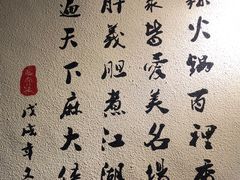 火锅百裡香
皆愛美名揚
肝義胆煮江湖
遍天下麻大侠
戊戌年